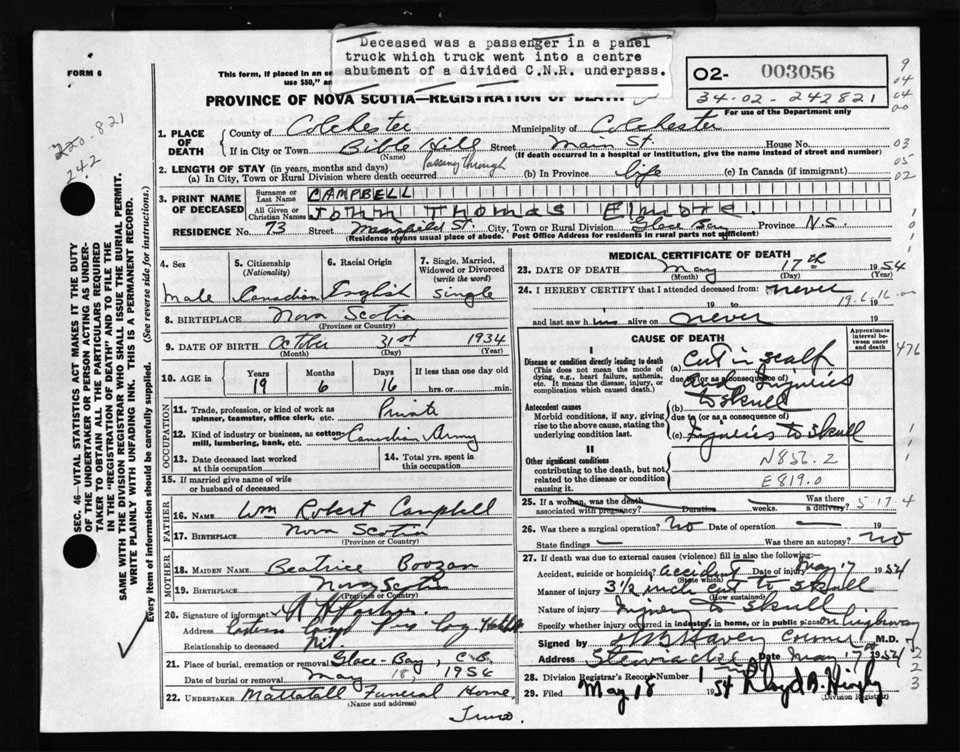 Deceased was a passenger in a panel
truck which truck went into a centre
abutment of a divided C.N.R. underpass.
FORM 6
This form, if placed in an en
use $50," an
02- 003056
34-02-242821
For use of the Department only
PROVINCE OF NOVA SCOTIA—REGISTRATION OF DEATH
9
04
04
00
03
05
02
220-821
242
1. PLACE OF DEATH
County of Colchester Municipality of Colchester
If in City or Town Bible Hill Street Main St. House No.
(Name) (If death occurred in a hospital or institution, give the name instead of street and number)
2. LENGTH OF STAY (in years, months and days)
(a) In City, Town or Rural Division where death occurred Passing through (b) In Province life (c) In Canada (if immigrant)
3. PRINT NAME OF DECEASED
Surname or Last Name CAMPBELL
All Given or Christian Names John Thomas Elmore.
RESIDENCE No. 73 Street Mansfield St. City, Town or Rural Division Glace Bay Province N.S.
(Residence means usual place of abode. Post Office Address for residents in rural parts not sufficient)
4. Sex
Male
5. Citizenship (Nationality)
Canadian
6. Racial Origin
English
7. Single, Married, Widowed or Divorced (write the word)
Single
8. BIRTHPLACE Nova Scotia
(Province or Country)
9. DATE OF BIRTH October 31st 1934
(Month) (Day) (Year)
10. AGE in Years Months Days If less than one day old
19 6 16 hrs. or min.
OCCUPATION
11. Trade, profession, or kind of work as spinner, teamster, office clerk, etc. Private
12. Kind of industry or business, as cotton-mill, lumbering, bank, etc. Canadian Army
13. Date deceased last worked at this occupation
14. Total yrs. spent in this occupation
15. If married give name of wife or husband of deceased
FATHER
16. NAME Wm Robert Campbell
17. BIRTHPLACE Nova Scotia
(Province or Country)
MOTHER
18. MAIDEN NAME Beatrice Boozan
19. BIRTHPLACE Nova Scotia
(Province or Country)
20. Signature of informant
Address Hfx
Relationship to deceased Nil
21. Place of burial, cremation or removal Glace-Bay, C.B.
Date of burial or removal May 18, 1954
22. UNDERTAKER Mattatall Funeral Home,
(Name and address)
Truro.
MEDICAL CERTIFICATE OF DEATH
23. DATE OF DEATH May 17th 1954
(Month) (Day) (Year)
24. I HEREBY CERTIFY that I attended deceased from never
19 to 19
and last saw him alive on never 19
CAUSE OF DEATH
Approximate interval between onset and death
I
Disease or condition directly leading to death
(This does not mean the mode of dying, e.g., heart failure, asthenia, etc. It means the disease, injury, or complication which caused death.)
(a) Cut in scalp
due to (or as a consequence of)
and Injuries to skull
Antecedent causes
Morbid conditions, if any, giving rise to the above cause, stating the underlying condition last.
(b)
due to (or as a consequence of)
(c) Injuries to Skull
II
Other significant conditions
contributing to the death, but not related to the disease or condition causing it.
N856.2
E819.0
476
25. If a woman, was the death associated with pregnancy? Duration weeks. Was there a delivery?
5-17 4
26. Was there a surgical operation? No Date of operation — 19
State findings — Was there an autopsy? No
27. If death was due to external causes (violence) fill in also the following:
Accident, suicide or homicide? accident Date of injury May 17 1954
(State which)
Manner of injury 3½ inch cut to skull
(How sustained)
Nature of injury Injury to skull
Specify whether injury occurred in industry, in home, or in public place on highway
Signed by Coroner M.D.
Address Stewiacke Date May 17th 1954
28. Division Registrar's Record Number 1
29. Filed May 18 1954
(Division Registrar)
SEC. 46—VITAL STATISTICS ACT MAKES IT THE DUTY
OF THE UNDERTAKER OR PERSON ACTING AS UNDER-
TAKER TO OBTAIN ALL THE PARTICULARS REQUIRED
IN THE "REGISTRATION OF DEATH" AND TO FILE THE
SAME WITH THE DIVISION REGISTRAR WHO SHALL ISSUE THE BURIAL PERMIT.
WRITE PLAINLY WITH UNFADING INK. THIS IS A PERMANENT RECORD.
Every item of information should be carefully supplied. (See reverse side for instructions.)